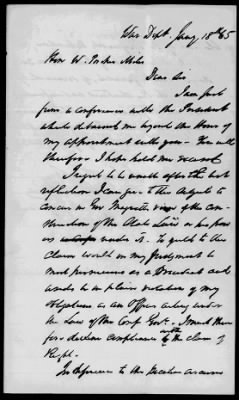 War Dept. Jany. 15th 65
Hon W. Porcher Miles
Dear Sir
I am just
from a conference with the President
which detained me beyond the Hour of
my appointment with you - You will
therefore I hope hold me excused
I regret to be unable after the best
reflection I can give to the subject to
concur in Gov Magrath's view of the con-
struction of the State Law or his power
as under it. To yield to the
Claim would in my Judgment be
most pernicious as a precedent and
would be in plain violation of my
obligations as an officer acting under
the Laws of the Conf. Govt. I must there
fore decline compliance with the claim of
Right.
In deference to the